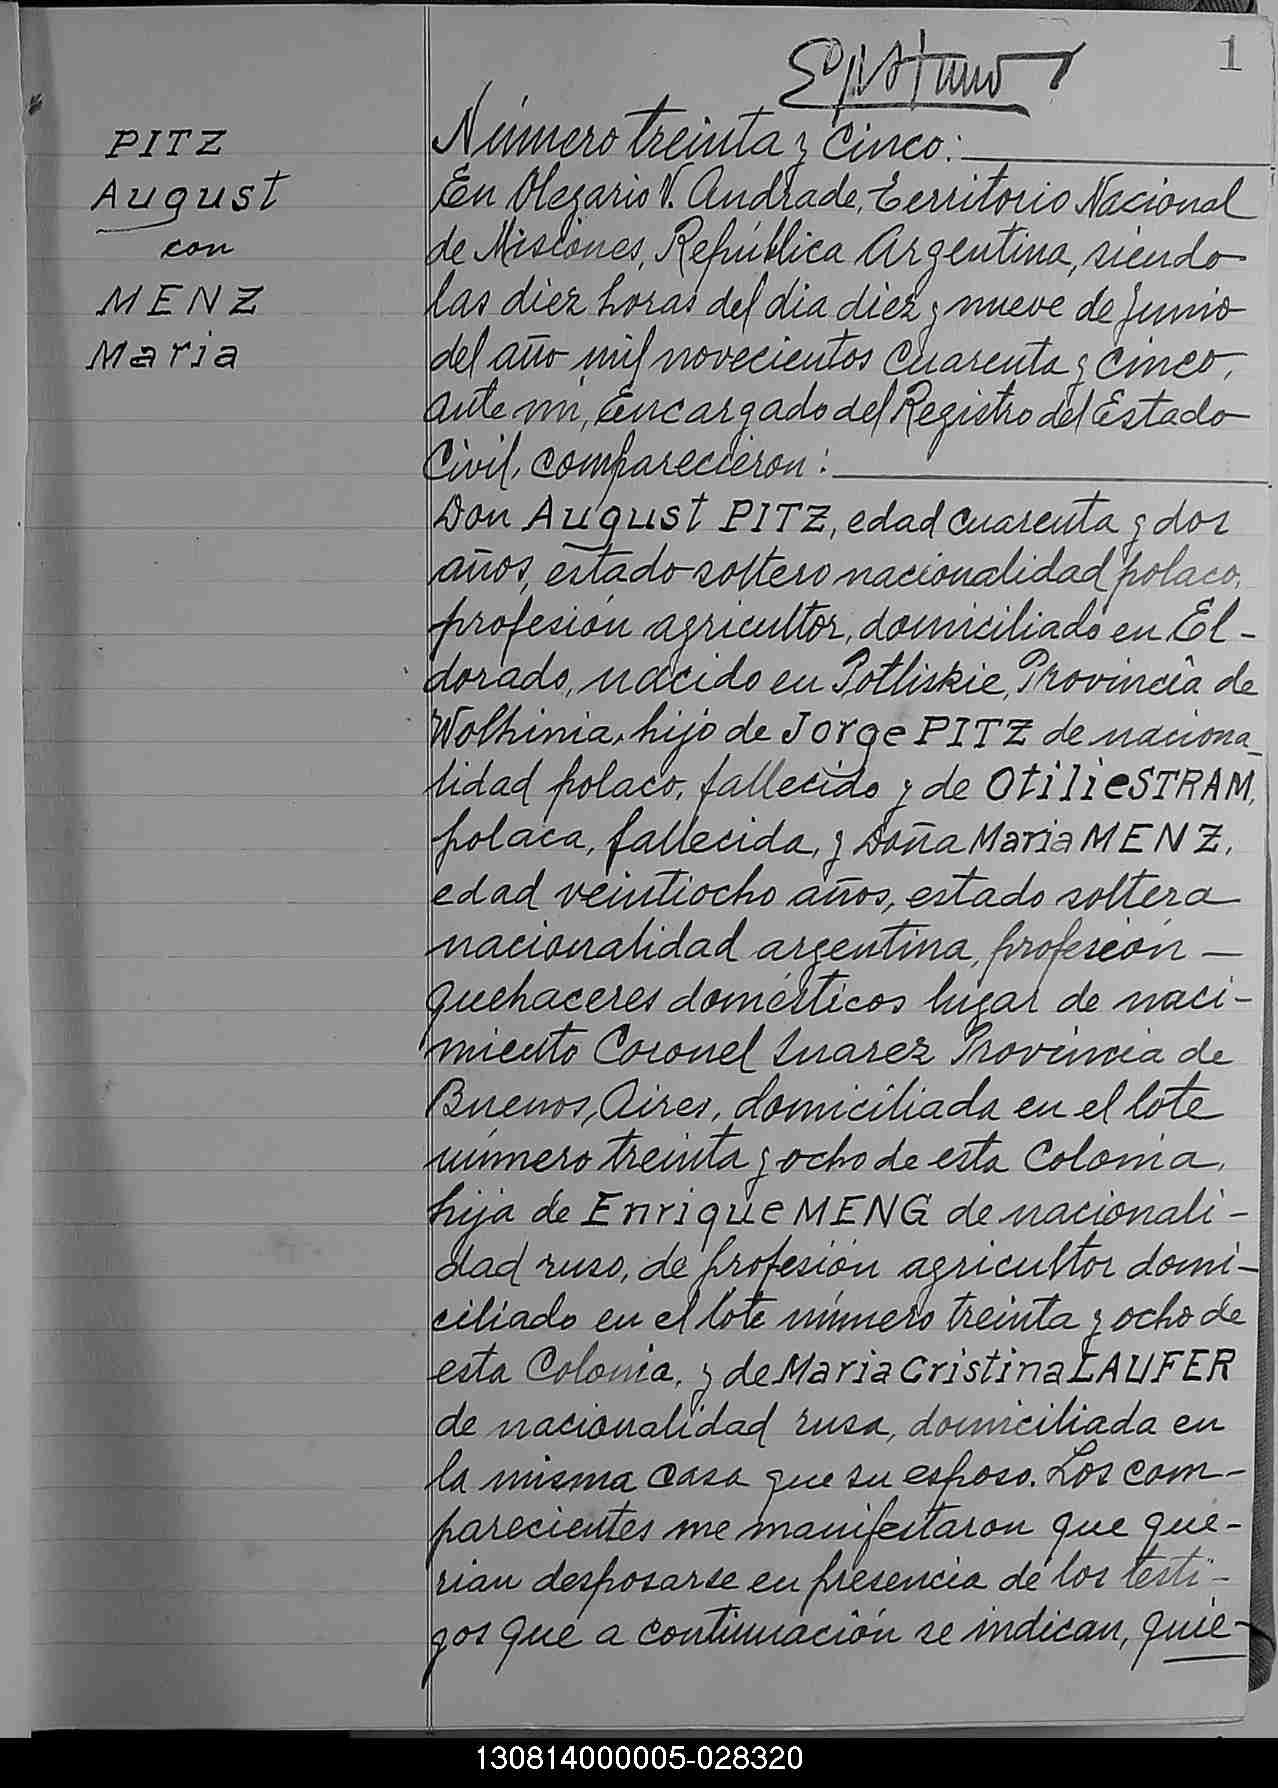 1
PITZ
August
con
MENZ
Maria
Número treinta y cinco:
En Olegario V. Andrade, territorio Nacional
de Misiones, República Argentina, siendo
las diez horas del dia diez y nueve de Junio
del año mil novecientos cuarenta y cinco,
ante mi, Encargado del Registro del Estado
Civil, comparecieron:
Don August PITZ, edad cuarenta y dos
años, estado soltero nacionalidad polaco,
profesión agricultor, domiciliado en El-
dorado, nacido en Potliskie, Provincia de
Wolhinia, hijo de Jorge PITZ de naciona-
lidad polaco, fallecido y de Otilie STRAM,
polaca, fallecida, y Doña Maria MENZ,
edad veintiocho años, estado soltera
nacionalidad argentina, profesión -
quehaceres domésticos lugar de naci-
miento Coronel Suarez Provincia de
Buenos Aires, domiciliada en el lote
número treinta y ocho de esta Colonia,
hija de Enrique MENG de nacionali-
dad ruso, de profesión agricultor domi-
ciliado en el lote número treinta y ocho de
esta Colonia, y de Maria Cristina LAUFER
de nacionalidad rusa, domiciliada en
la misma casa que su esposo. Los com-
parecientes me manifestaron que que-
rian desposarse en presencia de los testi-
gos que a continuación se indican, quie-
130814000005-028320